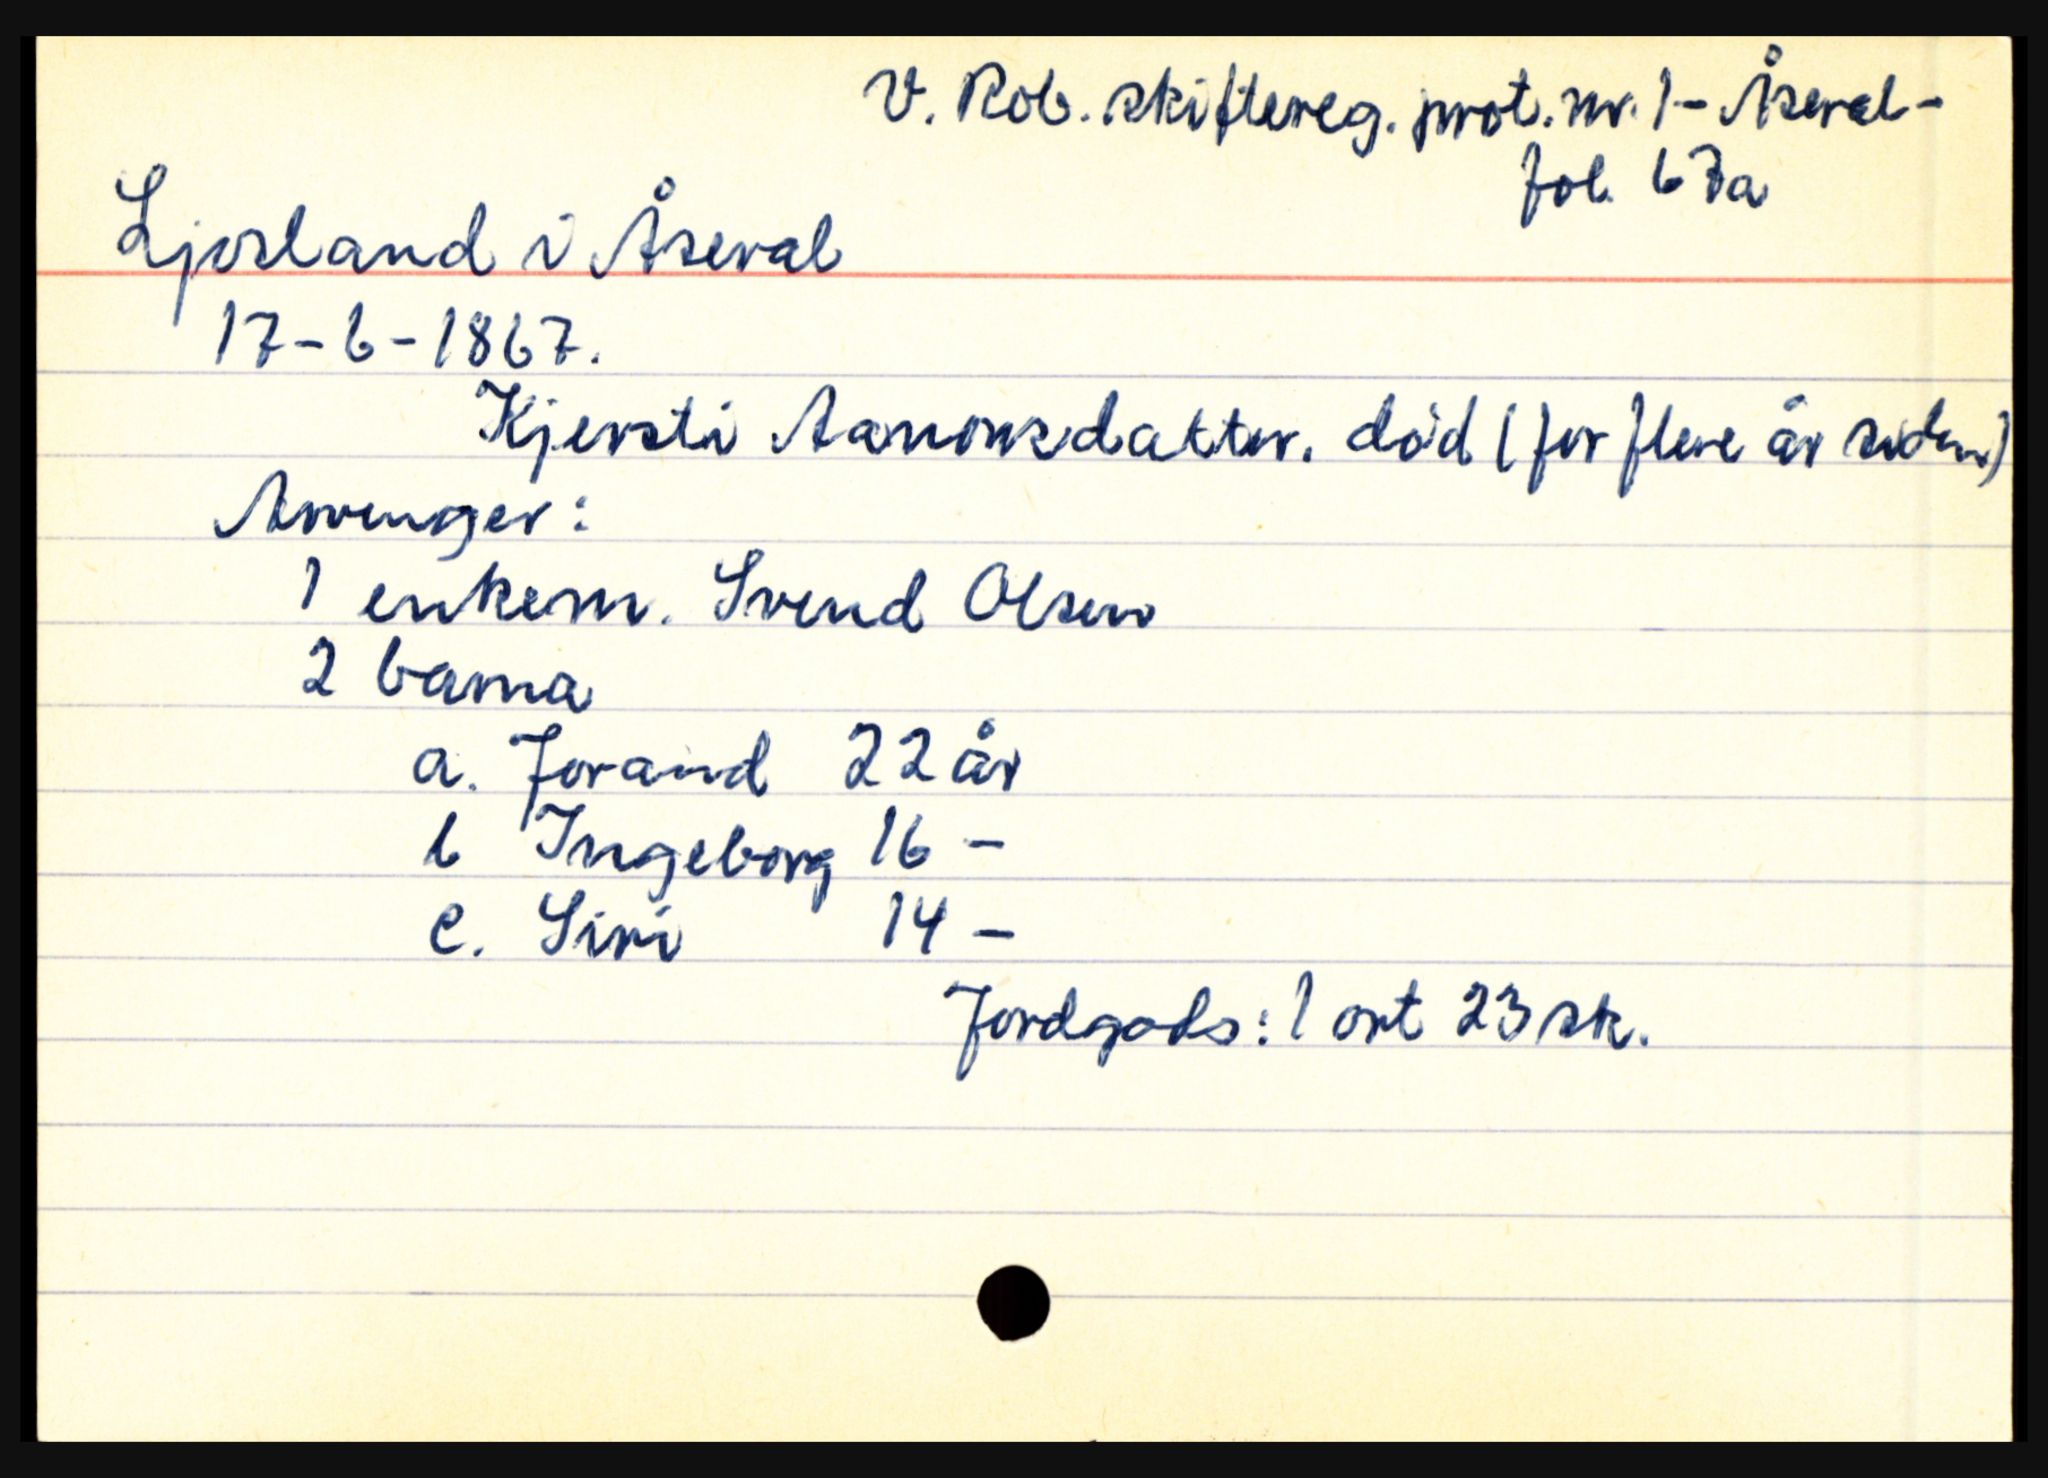 V. Rob. skiftereg. prot. nr. 1 - Åseral -
fol. 67a
Ljosland i Åseral
17-6-1867.
Kjersti Aanonsdatter. død (for flere år siden)
Arvinger:
1 enkem. Svend Olsen
2 barna
a. Jorand 22 år
b Ingeborg 16 -
c. Siri 14 -
Jordgods: 1 ort 23 sk.